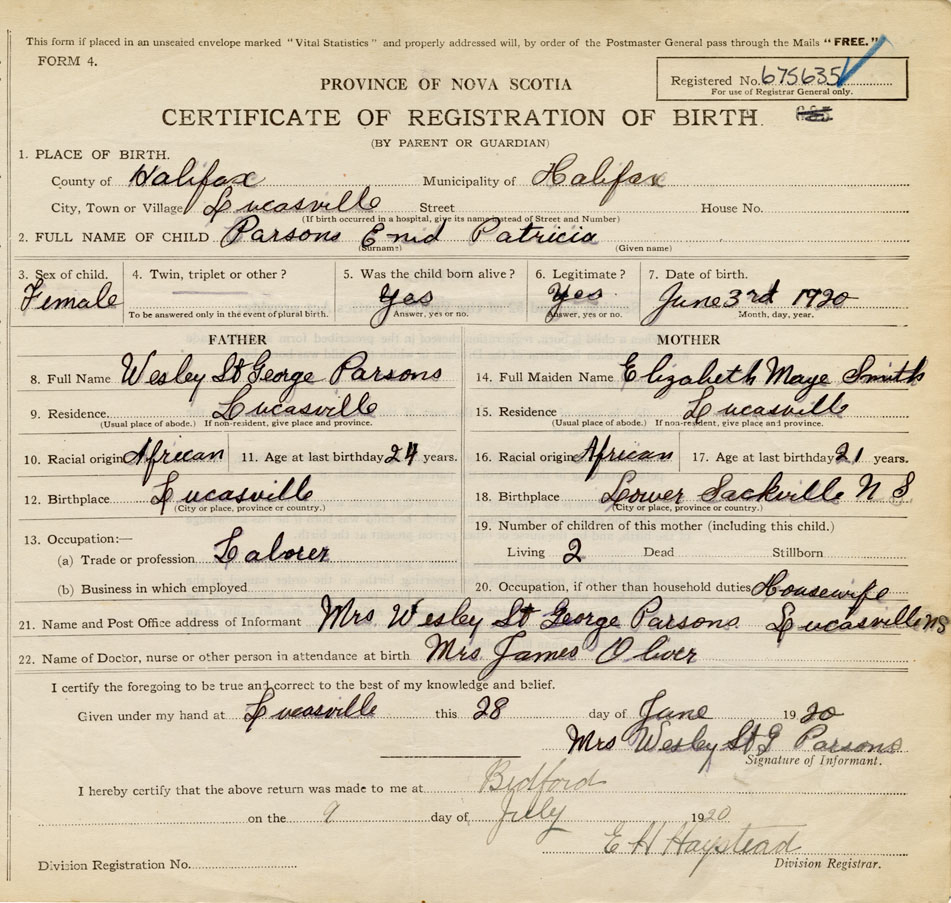 This form if placed in an unsealed envelope marked "Vital Statistics" and properly addressed will, by order of the Postmaster General pass through the Mails "FREE."
FORM 4.
Registered No. 675635
For use of Registrar General only.
PROVINCE OF NOVA SCOTIA
CERTIFICATE OF REGISTRATION OF BIRTH.
(BY PARENT OR GUARDIAN)
1. PLACE OF BIRTH.
County of Halifax Municipality of Halifax
City, Town or Village Lucasville Street House No.
(If birth occurred in a hospital, give its name instead of Street and Number)
2. FULL NAME OF CHILD Parsons Enid Patricia
(Surname) (Given name)
3. Sex of child. 4. Twin, triplet or other? 5. Was the child born alive? 6. Legitimate? 7. Date of birth.
Female Yes Yes June 3rd 1920
To be answered only in the event of plural birth. Answer, yes or no. Answer, yes or no. Month, day, year.
FATHER MOTHER
8. Full Name Wesley St George Parsons 14. Full Maiden Name Elizabeth Maye Smith
9. Residence Lucasville 15. Residence Lucasville
(Usual place of abode.) If non-resident, give place and province. (Usual place of abode.) If non-resident, give place and province.
10. Racial origin African 11. Age at last birthday 24 years. 16. Racial origin African 17. Age at last birthday 21 years.
12. Birthplace Lucasville 18. Birthplace Lower Sackville N S
(City or place, province or country.) (City or place, province or country.)
13. Occupation:— 19. Number of children of this mother (including this child.)
(a) Trade or profession Laborer Living 2 Dead Stillborn
(b) Business in which employed 20. Occupation, if other than household duties Housewife
21. Name and Post Office address of Informant Mrs Wesley St George Parsons Lucasville NS
22. Name of Doctor, nurse or other person in attendance at birth Mrs James Oliver
I certify the foregoing to be true and correct to the best of my knowledge and belief.
Given under my hand at Lucasville this 28 day of June 1920
Mrs Wesley St G Parsons
Signature of Informant.
I hereby certify that the above return was made to me at Bedford
on the 9 day of July 1920
E H Haystead
Division Registration No. Division Registrar.